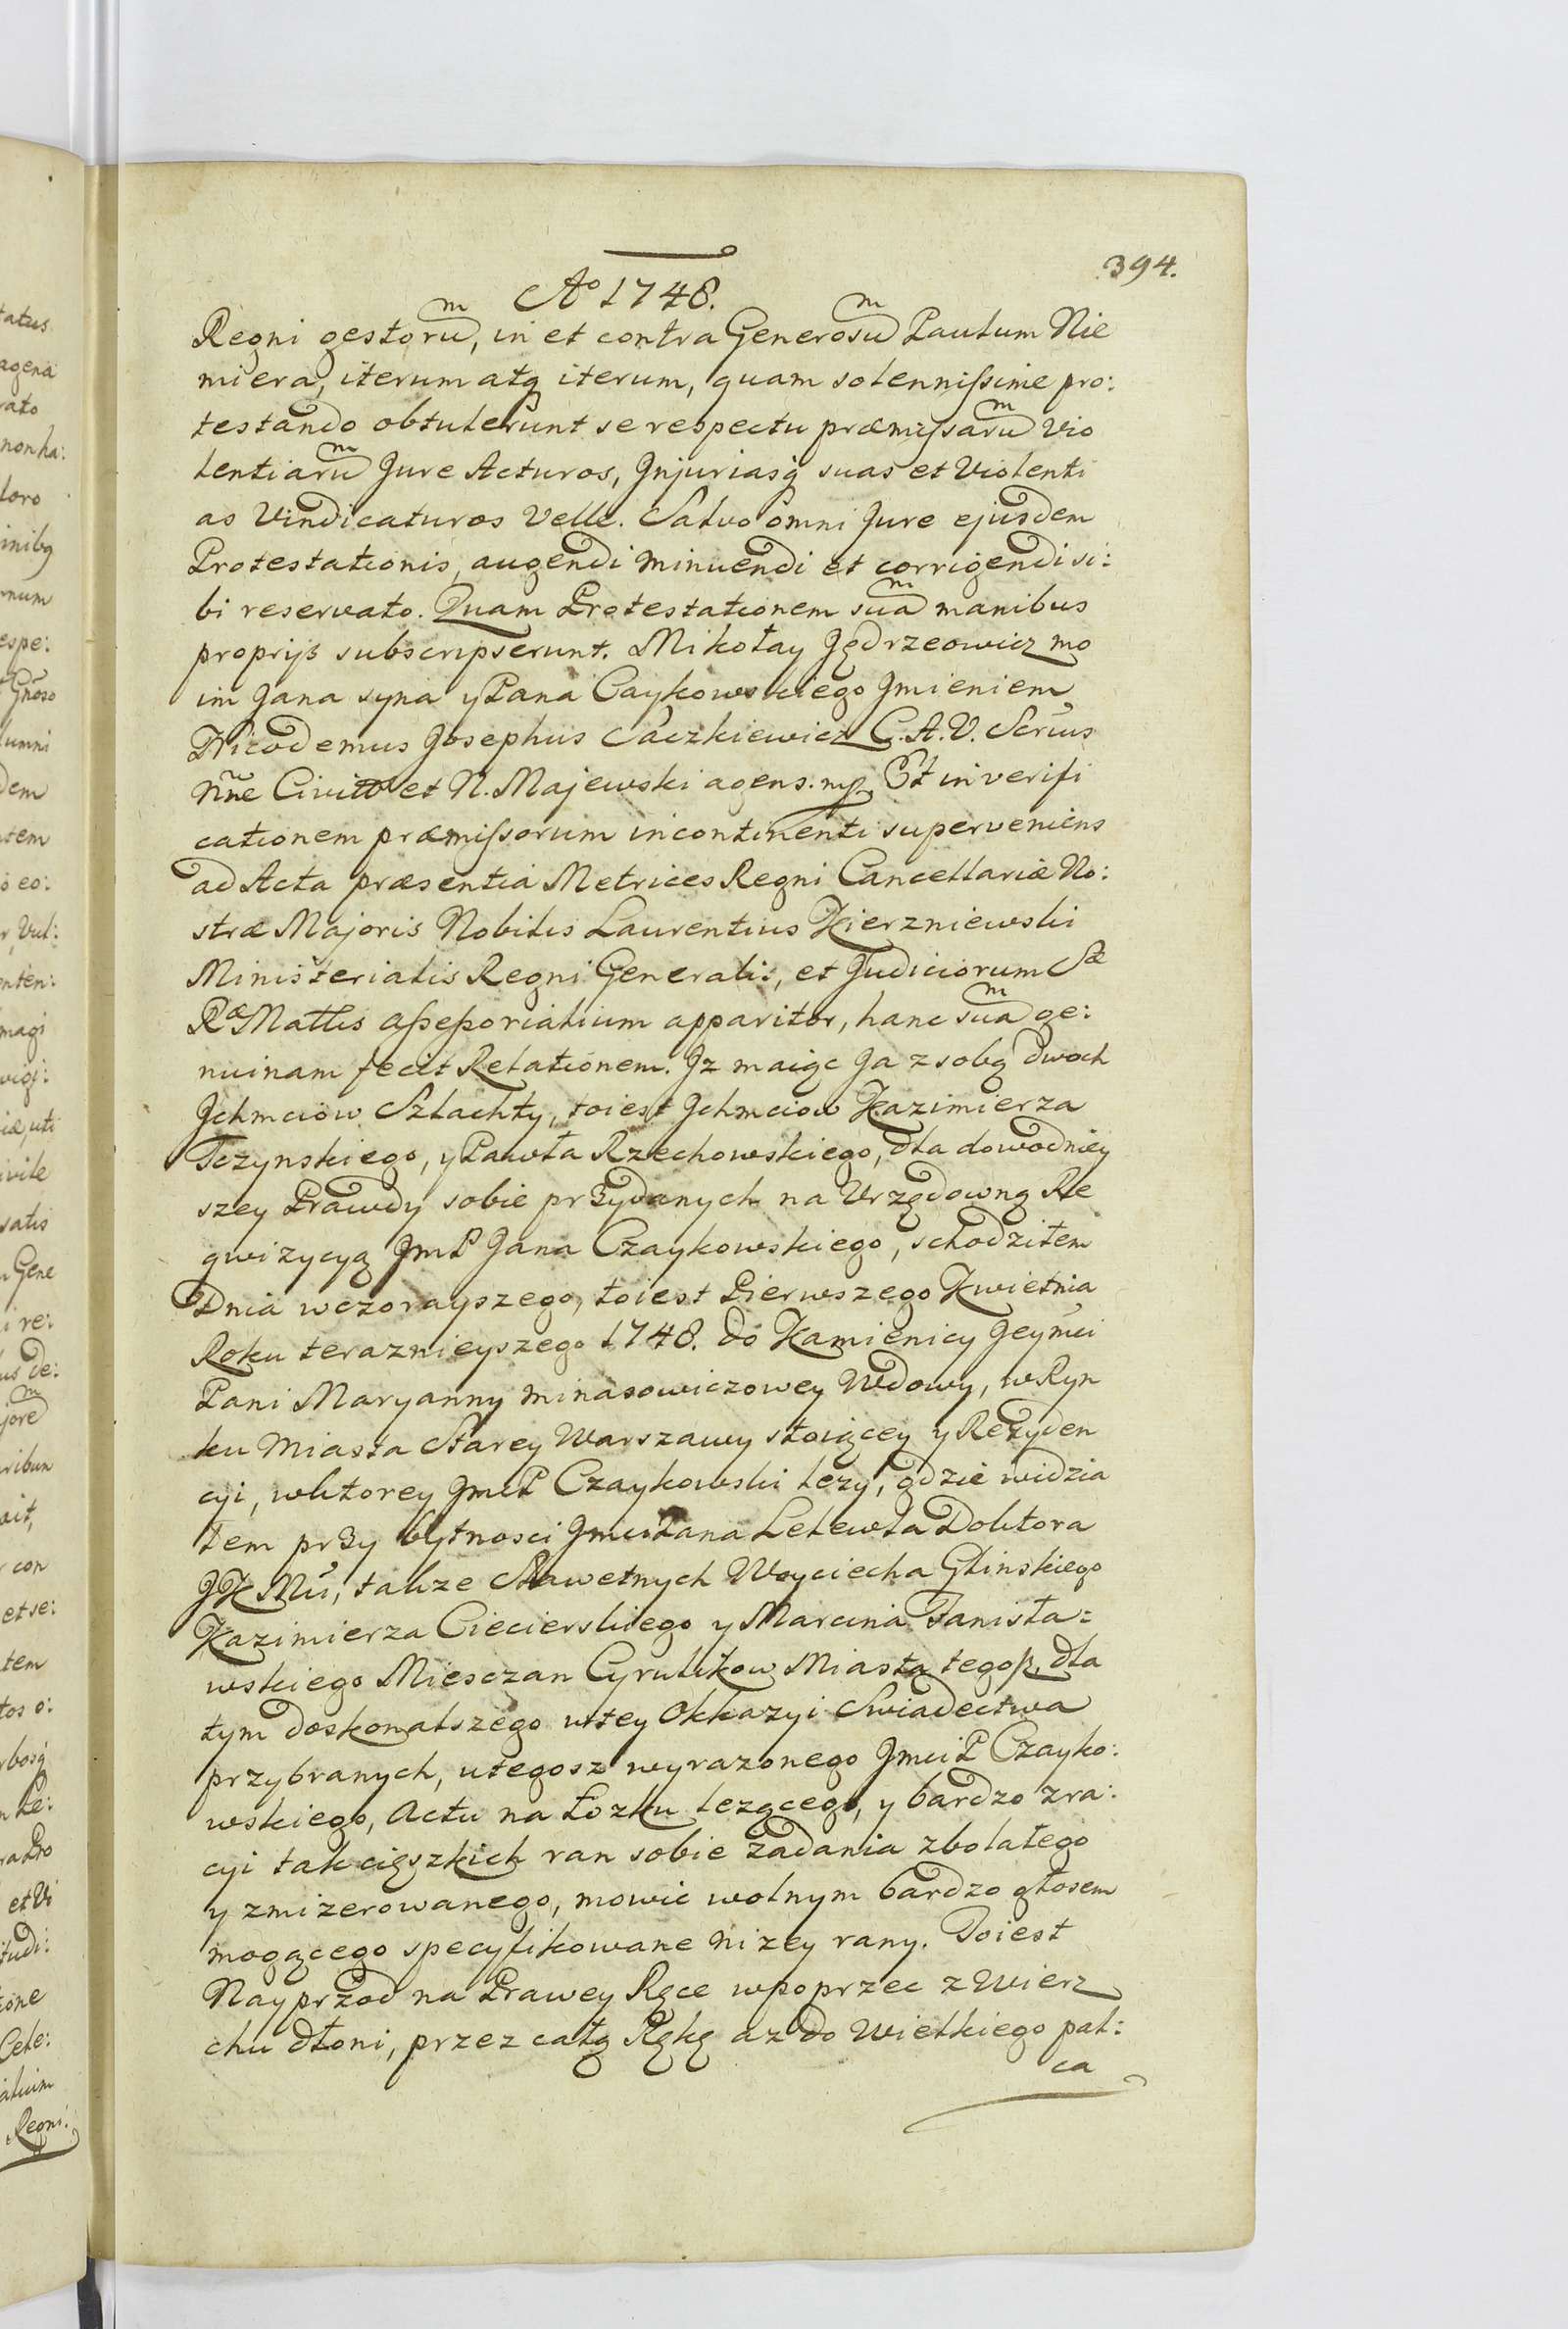 394.
Aº 1748.
Regni gestoru͞m, in et contra Generosu͞m Paulum Nie
miera, iterum atq iterum, quam solennissime pro:
testando obtulerunt se respectu præmissaru͞m Vio
lentiaru͞m Jure Acturos, Injuriasq suas et Violenti
as Vindicaturos Velle. Salvo omni Jure ejusdem
Protestationis, augendi minuendi et corrigendi si:
bi reservato. Quam Protestationem sua͞m manibus
proprijs subscripserunt. Mikołay Jędrzeowicz mo
im Jana syna y Pana Caykowskiego Imieniem
Nicodemus Josephus Saczkiewicz C. A. V. Scrius
Nne Civitt et N. Majewski agens. mp. Et in verifi
cationem præmissorum incontinenti superveniens
ad Acta præsentia Metrices Regni Cancellariæ No:
stræ Majoris Nobilis Laurentius Kierzniewski
Ministerialis Regni Generalis, et Judiciorum Sæ
Ræ Mattis assessorialium apparitor, hanc sua͞m ge:
nuinam fecit Relationem. Iz maiąc Ja z sobą dwoch
Ichmciow Szlachty, toiest Ichmciow Kazimierza
Tczynskiego, y Pawła Rzechowskiego, dla dowodniey
szey Prawdy sobie przydanych na Vrzędowną Re
qwizycyą JmP Jana Czaykowskiego, schodziłem
Dnia wczorayszego, toiest Pierwszego Kwietnia
Roku teraznieyszego 1748. do Kamienicy Jeymci
Pani Maryanny Minasowiczowey Wdowy, w Ryn
ku Miasta Starey Warszawy stoiącey y Rezyden
cyi, wktorey JmcP Czaykowski lezy, gdzie widzia
łem przy bytnosci Jmci Pana Lelewla Doktora
JK Mci, takze Sławetnych Woyciecha Glinskiego
Kazimierza Ciecierskiego y Marcina Tanisła=
wskiego Miesczan Cyrulikow Miasta tegoż, dla
tym doskonalszego w tey Okkazyi Swiadectwa
przybranych, utegosz wyrazonego Jmci P Czayko:
wskiego, Actu na Łozku lezącego, y bardzo zra:
cyi tak cięszkich ran sobie zadania zbolałego
y zmizerowanego, mowić wolnym bardzo głosem
mogącego specyfikowane nizey rany. Toiest
Nayprzod na Prawey Ręce wpoprzec z Wierz
chu dłoni, przez całą Rękę az do Wielkiego pal:
ca